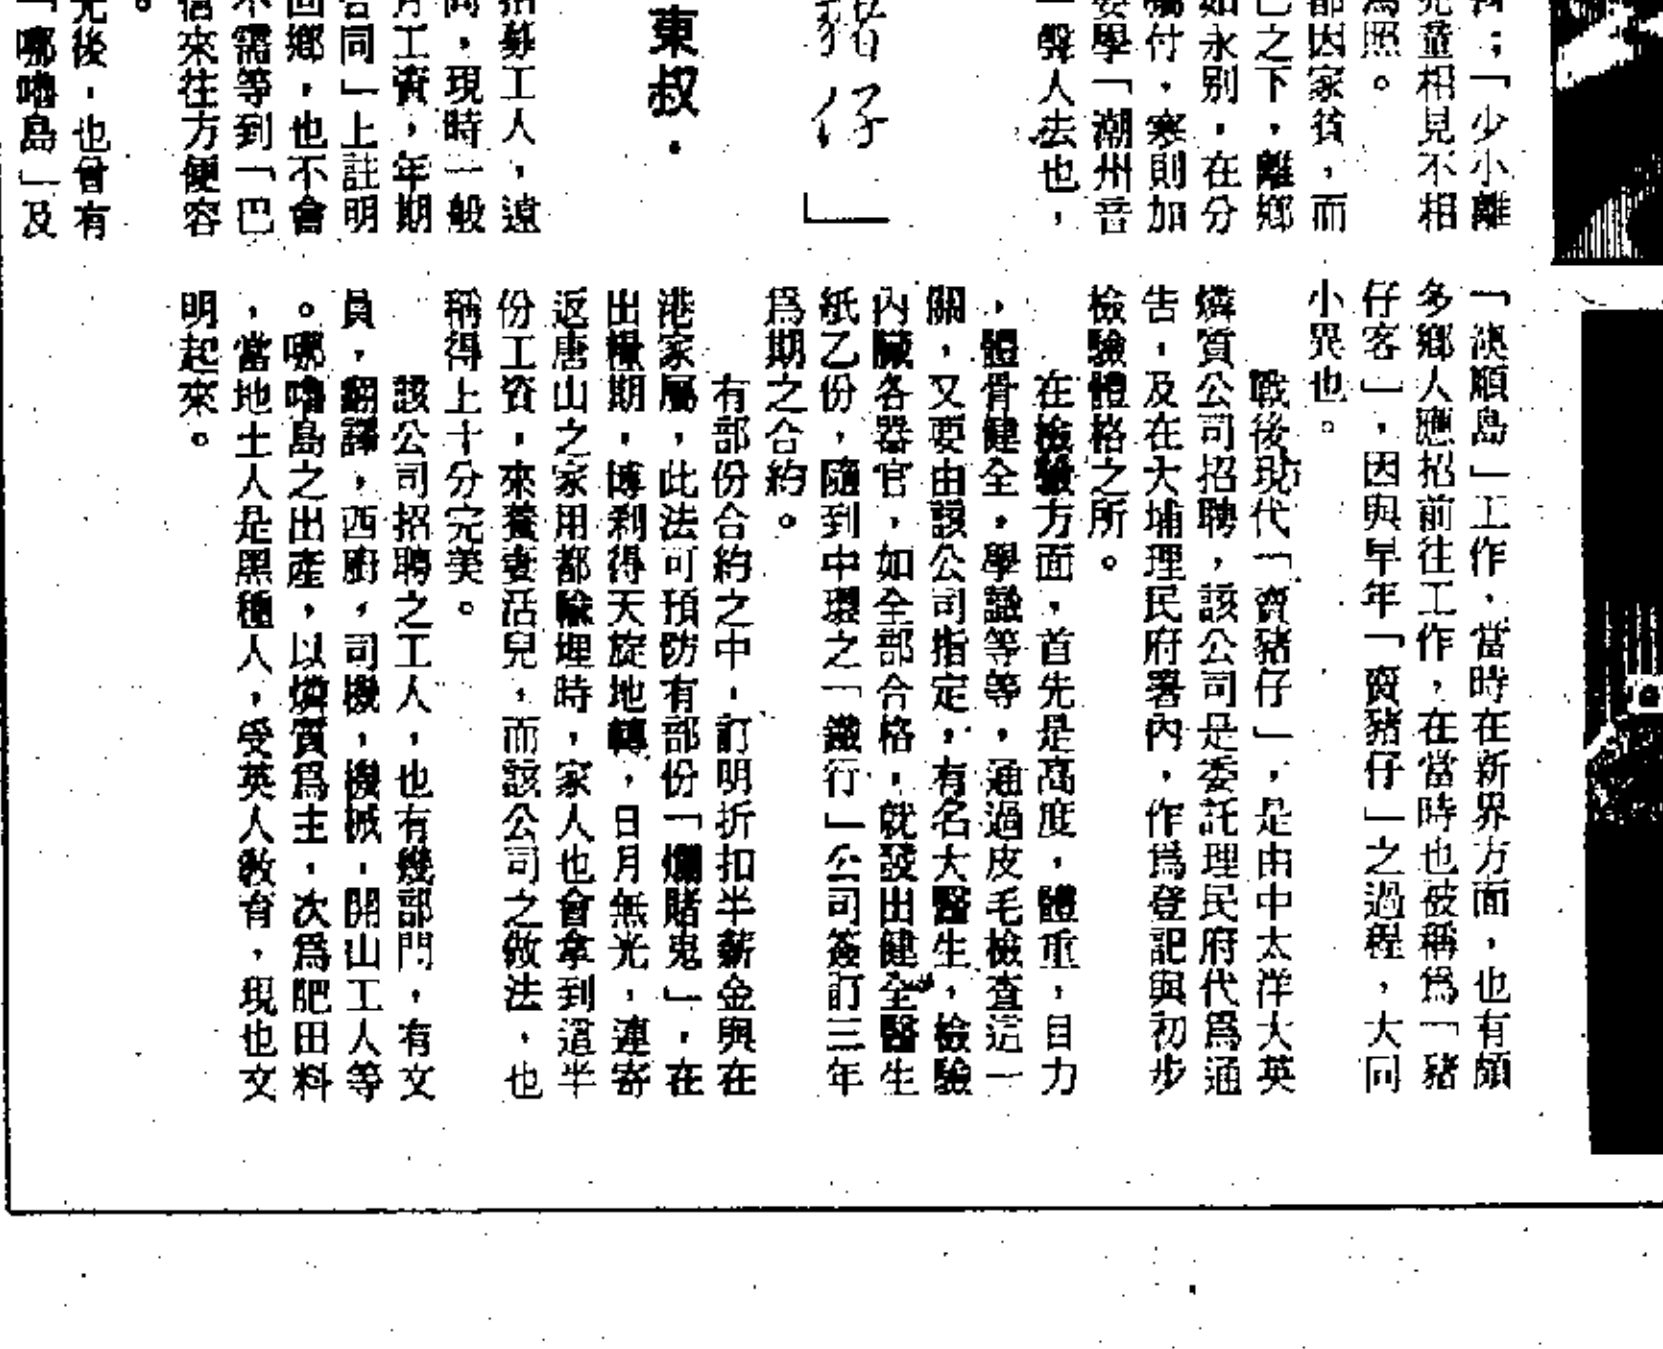 ；「少小離
童相見不相
為照。
都因家貧，而
之下，離鄉
如永别，在分
付，寒則加
學「潮州音
一聲人去也，
豬仔」
東叔．
招募工人，遠
，現時一般
月工資，年期
合同」上註明
回鄉，也不會
不需等到「巴
信來往方便容
。
先後，也曾有
「哪嚕島」及
「澳順島」工作，當時在新界方面，也有頗
多鄉人應招前往工作，在當時也被稱爲「豬
仔客」，因與早年「賣豬仔」之過程，大同
小異也。
戰後現代「賣豬仔」，是由中太洋大英
燐質公司招聘，該公司是委託理民府代爲通
告，及在大埔理民府署內，作爲登記與初步
檢驗體格之所。
在檢驗方面，首先是高度，體重，目力
，體骨健全，學識等等，通過皮毛檢查這一
關，又要由該公司指定，有名大醫生，檢驗
內臟各器官，如全部合格，就發出健全醫生
紙乙份，隨到中環之「鐵行」公司簽訂三年
爲期之合約。
有部份合約之中，訂明折扣半薪金與在
港家屬，此法可預防有部份「爛賭鬼」，在
出糧期，博利得天旋地轉，日月無光，連寄
返唐山之家用都輸埋時，家人也會拿到這半
份工資，來養妻活兒，而該公司之做法，也
稱得上十分完美。
該公司招聘之工人，也有幾部門，有文
員，翻譯，西廚，司機，機械，開山工人等
。哪嚕島之出產，以燐質爲主，次爲肥田料
，當地土人是黑種人，受英人敎育，現也文
明起來。